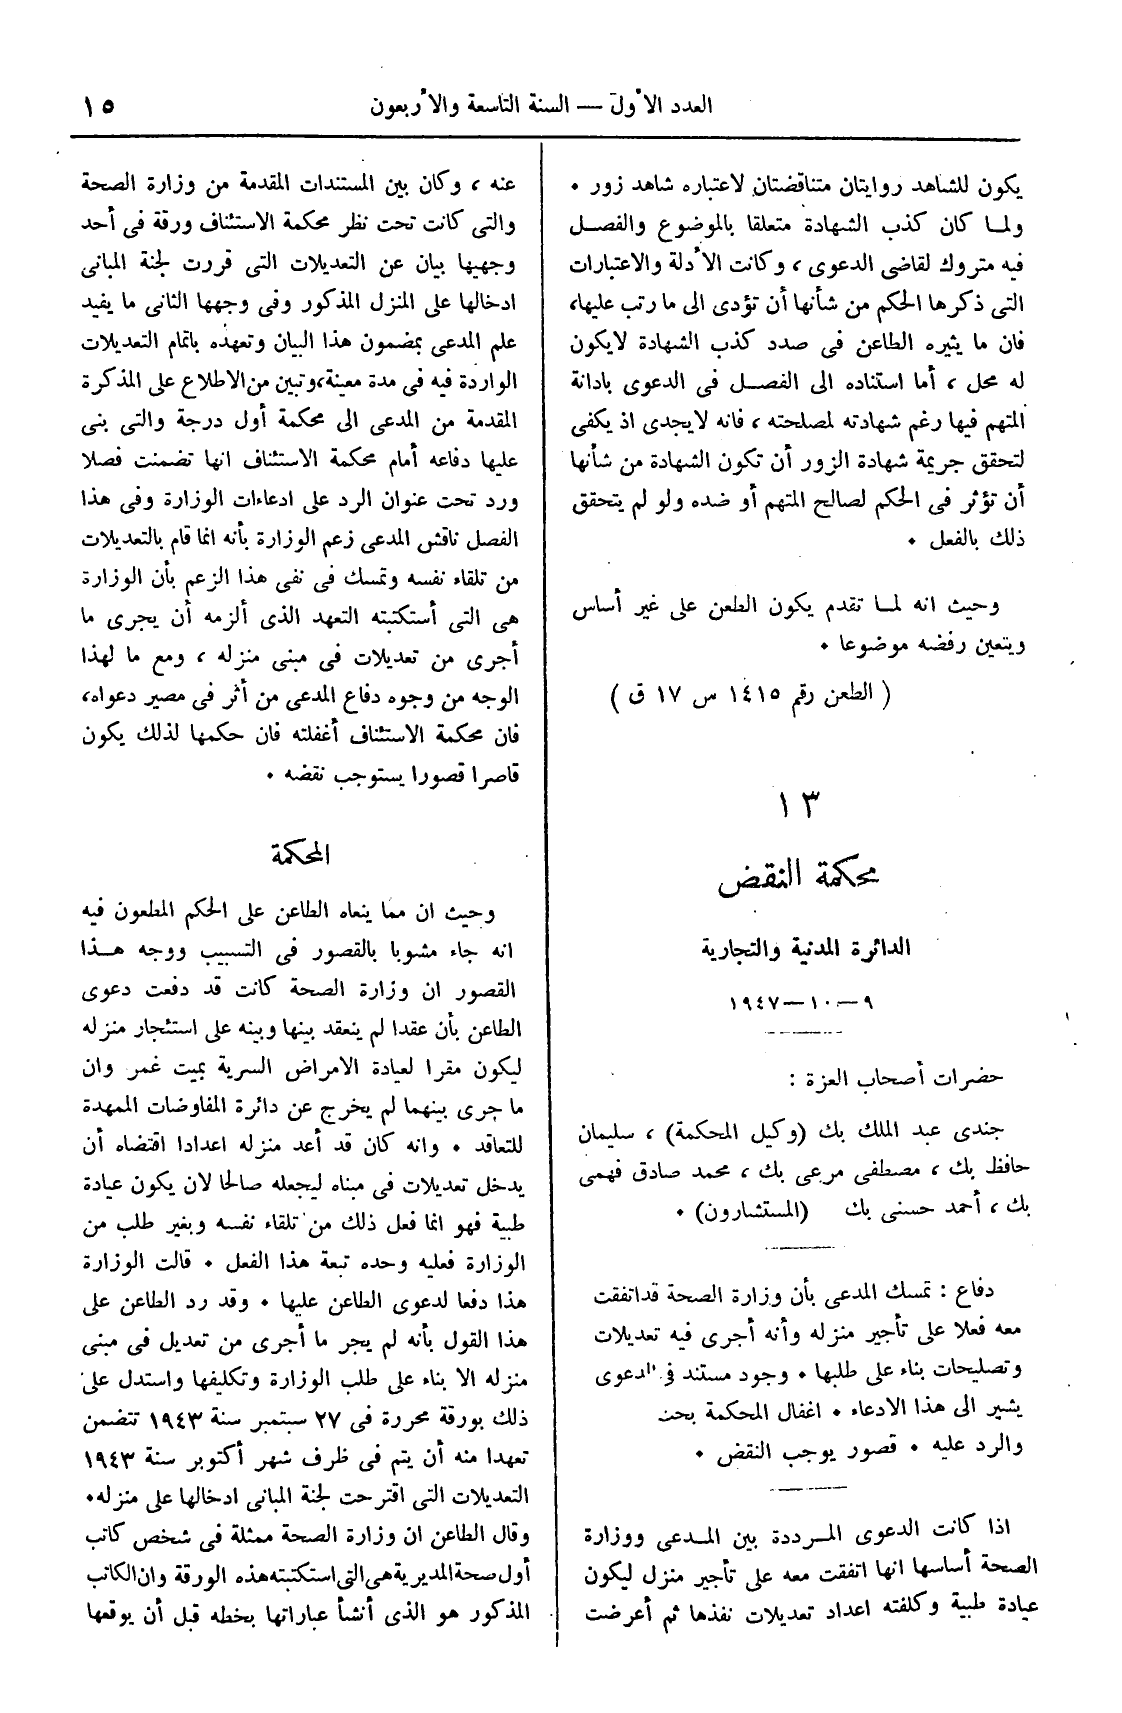 العدد الأول — السنة التاسعة والأربعون
١٥
يكون للشاهد روايتان متناقضتان لاعتباره شاهد زور ٠
ولمـا كان كذب الشهادة متعلقا بالموضوع والفصـل
فيه متروك لقاضى الدعوى ، وكانت الأدلة والاعتبارات
التى ذكرها الحكم من شأنها أن تؤدى الى ما رتب عليها،
فان ما يثيره الطاعن فى صدد كذب الشهادة لايكون
له محل ، أما استناده الى الفصـل فى الدعوى بادانة
المتهم فيها رغم شهادته لمصلحته ، فانه لايجدى اذ يكفى
لتحقق جريمة شهادة الزور أن تكون الشهادة من شأنها
أن تؤثر فى الحكم لصالح المتهم أو ضده ولو لم يتحقق
ذلك بالفعل ٠
وحيث انه لمـا تقدم يكون الطعن على غير أساس
ويتعين رفضه موضوعا ٠
( الطعن رقم ١٤١٥ س ١٧ ق )
١٣
محكمة النقض
الدائرة المدنية والتجارية
٩—١٠—١٩٤٧
حضرات أصحاب العزة :
جندى عبد الملك بك (وكيل المحكمة) ، سليمان
حافظ بك ، مصطفى مرعى بك ، محمد صادق فهمى
بك ، أحمد حسنى بك (المستشارون) ٠
دفاع : تمسك المدعى بأن وزارة الصحة قداتفقت
معه فعلا على تأجير منزله وأنه أجرى فيه تعديلات
وتصليحات بناء على طلبها ٠ وجود مستند فى الدعوى
يشير الى هذا الادعاء ٠ اغفال المحكمة بحث
والرد عليه ٠ قصور يوجب النقض ٠
اذا كانت الدعوى المـرددة بين المـدعى ووزارة
الصحة أساسها انها اتفقت معه على تأجير منزل ليكون
عيادة طبية وكلفته اعداد تعديلات نفذها ثم أعرضت
عنه ، وكان بين المستندات المقدمة من وزارة الصحة
والتى كانت تحت نظر محكمة الاستئناف ورقة فى أحد
وجهيها بيان عن التعديلات التى قررت لجنة المبانى
ادخالها على المنزل المذكور وفى وجهها الثانى ما يفيد
علم المدعى بمضمون هذا البيان وتعهده باتمام التعديلات
الواردة فيه فى مدة معينة،وتبين من الاطلاع على المذكرة
المقدمة من المدعى الى محكمة أول درجة والتى بنى
عليها دفاعه أمام محكمة الاستئناف انها تضمنت فصلا
ورد تحت عنوان الرد على ادعاءات الوزارة وفى هذا
الفصل ناقش المدعى زعم الوزارة بأنه انما قام بالتعديلات
من تلقاء نفسه وتمسك فى نفى هذا الزعم بأن الوزارة
هى التى أستكتبته التعهد الذى ألزمه أن يجرى ما
أجرى من تعديلات فى مبنى منزله ، ومع ما لهذا
الوجه من وجوه دفاع المدعى من أثر فى مصير دعواه،
فان محكمة الاستئناف أغفلته فان حكمها لذلك يكون
قاصرا قصورا يستوجب نقضه ٠
المحكمة
وحيث ان مما ينعاه الطاعن على الحكم المطعون فيه
انه جاء مشوبا بالقصور فى التسبيب ووجه هـذا
القصور ان وزارة الصحة كانت قد دفعت دعوى
الطاعن بأن عقدا لم ينعقد بينها وبينه على استئجار منزله
ليكون مقرا لعيادة الامراض السرية بميت غمر وان
ما جرى بينهما لم يخرج عن دائرة المفاوضات الممهدة
للتعاقد ٠ وانه كان قد أعد منزله اعدادا اقتضاه أن
يدخل تعديلات فى مبناه ليجعله صالحا لان يكون عيادة
طبية فهو انما فعل ذلك من تلقاء نفسه وبغير طلب من
الوزارة فعليه وحده تبعة هذا الفعل ٠ قالت الوزارة
هذا دفعا لدعوى الطاعن عليها ٠ وقد رد الطاعن على
هذا القول بأنه لم يجر ما أجرى من تعديل فى مبنى
منزله الا بناء على طلب الوزارة وتكليفها واستدل على
ذلك بورقة محررة فى ٢٧ سبتمبر سنة ١٩٤٣ تتضمن
تعهدا منه أن يتم فى ظرف شهر أكتوبر سنة ١٩٤٣
التعديلات التى اقترحت لجنة المبانى ادخالها على منزله٠
وقال الطاعن ان وزارة الصحة ممثلة فى شخص كاتب
أول صحة المديرية هى التى استكتبته هذه الورقة وان الكاتب
المذكور هو الذى أنشأ عباراتها بخطه قبل أن يوقعها